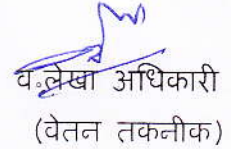 व.लेखा अधिकारी
(वेतन तकनीक)